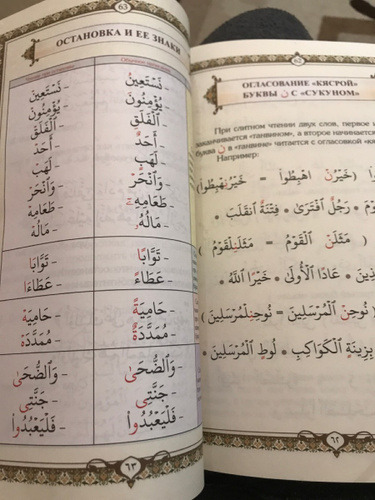 63
ОСТАНОВКА И ЕЕ ЗНАКИ
- نَسْتَعِينُ - نَسْتَعِينْ
- يُؤْمِنُونَ - يُؤْمِنُونْ
- ٱلْفَلَقِ - ٱلْفَلَقْ
- أَحَدٌ - أَحَدْ
- لَهَبٍ - لَهَبْ
- وَٱنْحَرْ - وَٱنْحَرْ
- طَعَامِهِ - طَعَامِهْ
- مَالُهُ - مَالُهْ
- تَوَّابًا - تَوَّابَا
- عَطَاءً - عَطَاءَا
- حَامِيَةً - حَامِيَهْ
- مُمَدَّدَةٌ - مُمَدَّدَهْ
- وَٱلضُّحَىٰ - وَٱلضُّحَىٰ
- جَنَّتِي - جَنَّتِي
- فَلْيَعْبُدُوا۟ - فَلْيَعْبُدُوا۟
٦٣
ОГЛАСОВАНИЕ «КЯСРОЙ»
БУКВЫ ن С «СУКУНОМ»
При слитном чтении двух слов, первое
заканчивается «танвином», а второе начинается
буква ن в «танвине» читается с огласовкой
Например:
(خَيْرٌ ٱهْبِطُوا = خَيْرُنِهْبِطُوا)
* رَجُلٌ ٱفْتَرَىٰ * فِتْنَةٌ ٱنْقَلَبَ *
(مَثَلًا ٱلْقَوْمُ = مَثَلَنِلْقَوْمُ)
* عَادًا ٱلْأُولَىٰ * خَيْرًا ٱللَّهُ *
(نُوحٍ ٱلْمُرْسَلِينَ = نُوحِنِلْمُرْسَلِينَ)
بِزِينَةٍ ٱلْكَوَاكِبِ * لُوطٍ ٱلْمُرْسَلِينَ *
٦٢